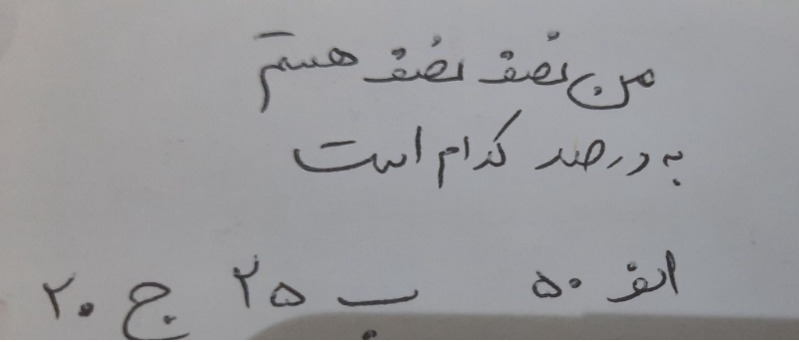 من نصف نصف هستم
به درصد کدام است
الف ۵۰ ب ۲۵ ج ۲۰